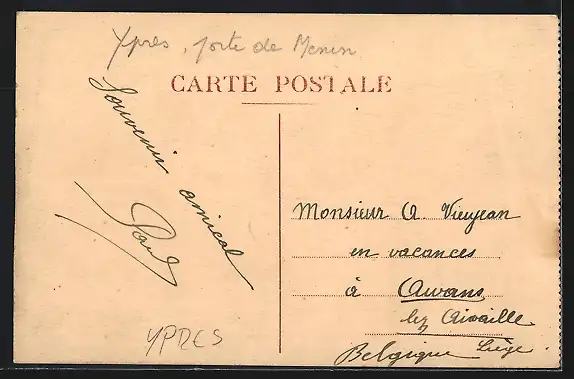 Ypres, porte de Menin
CARTE POSTALE
Souvenir amical
Paul
YPRES
Monsieur A. Vieujean
en vacances
à Awans
lez Aivaille
Liège.
Belgique